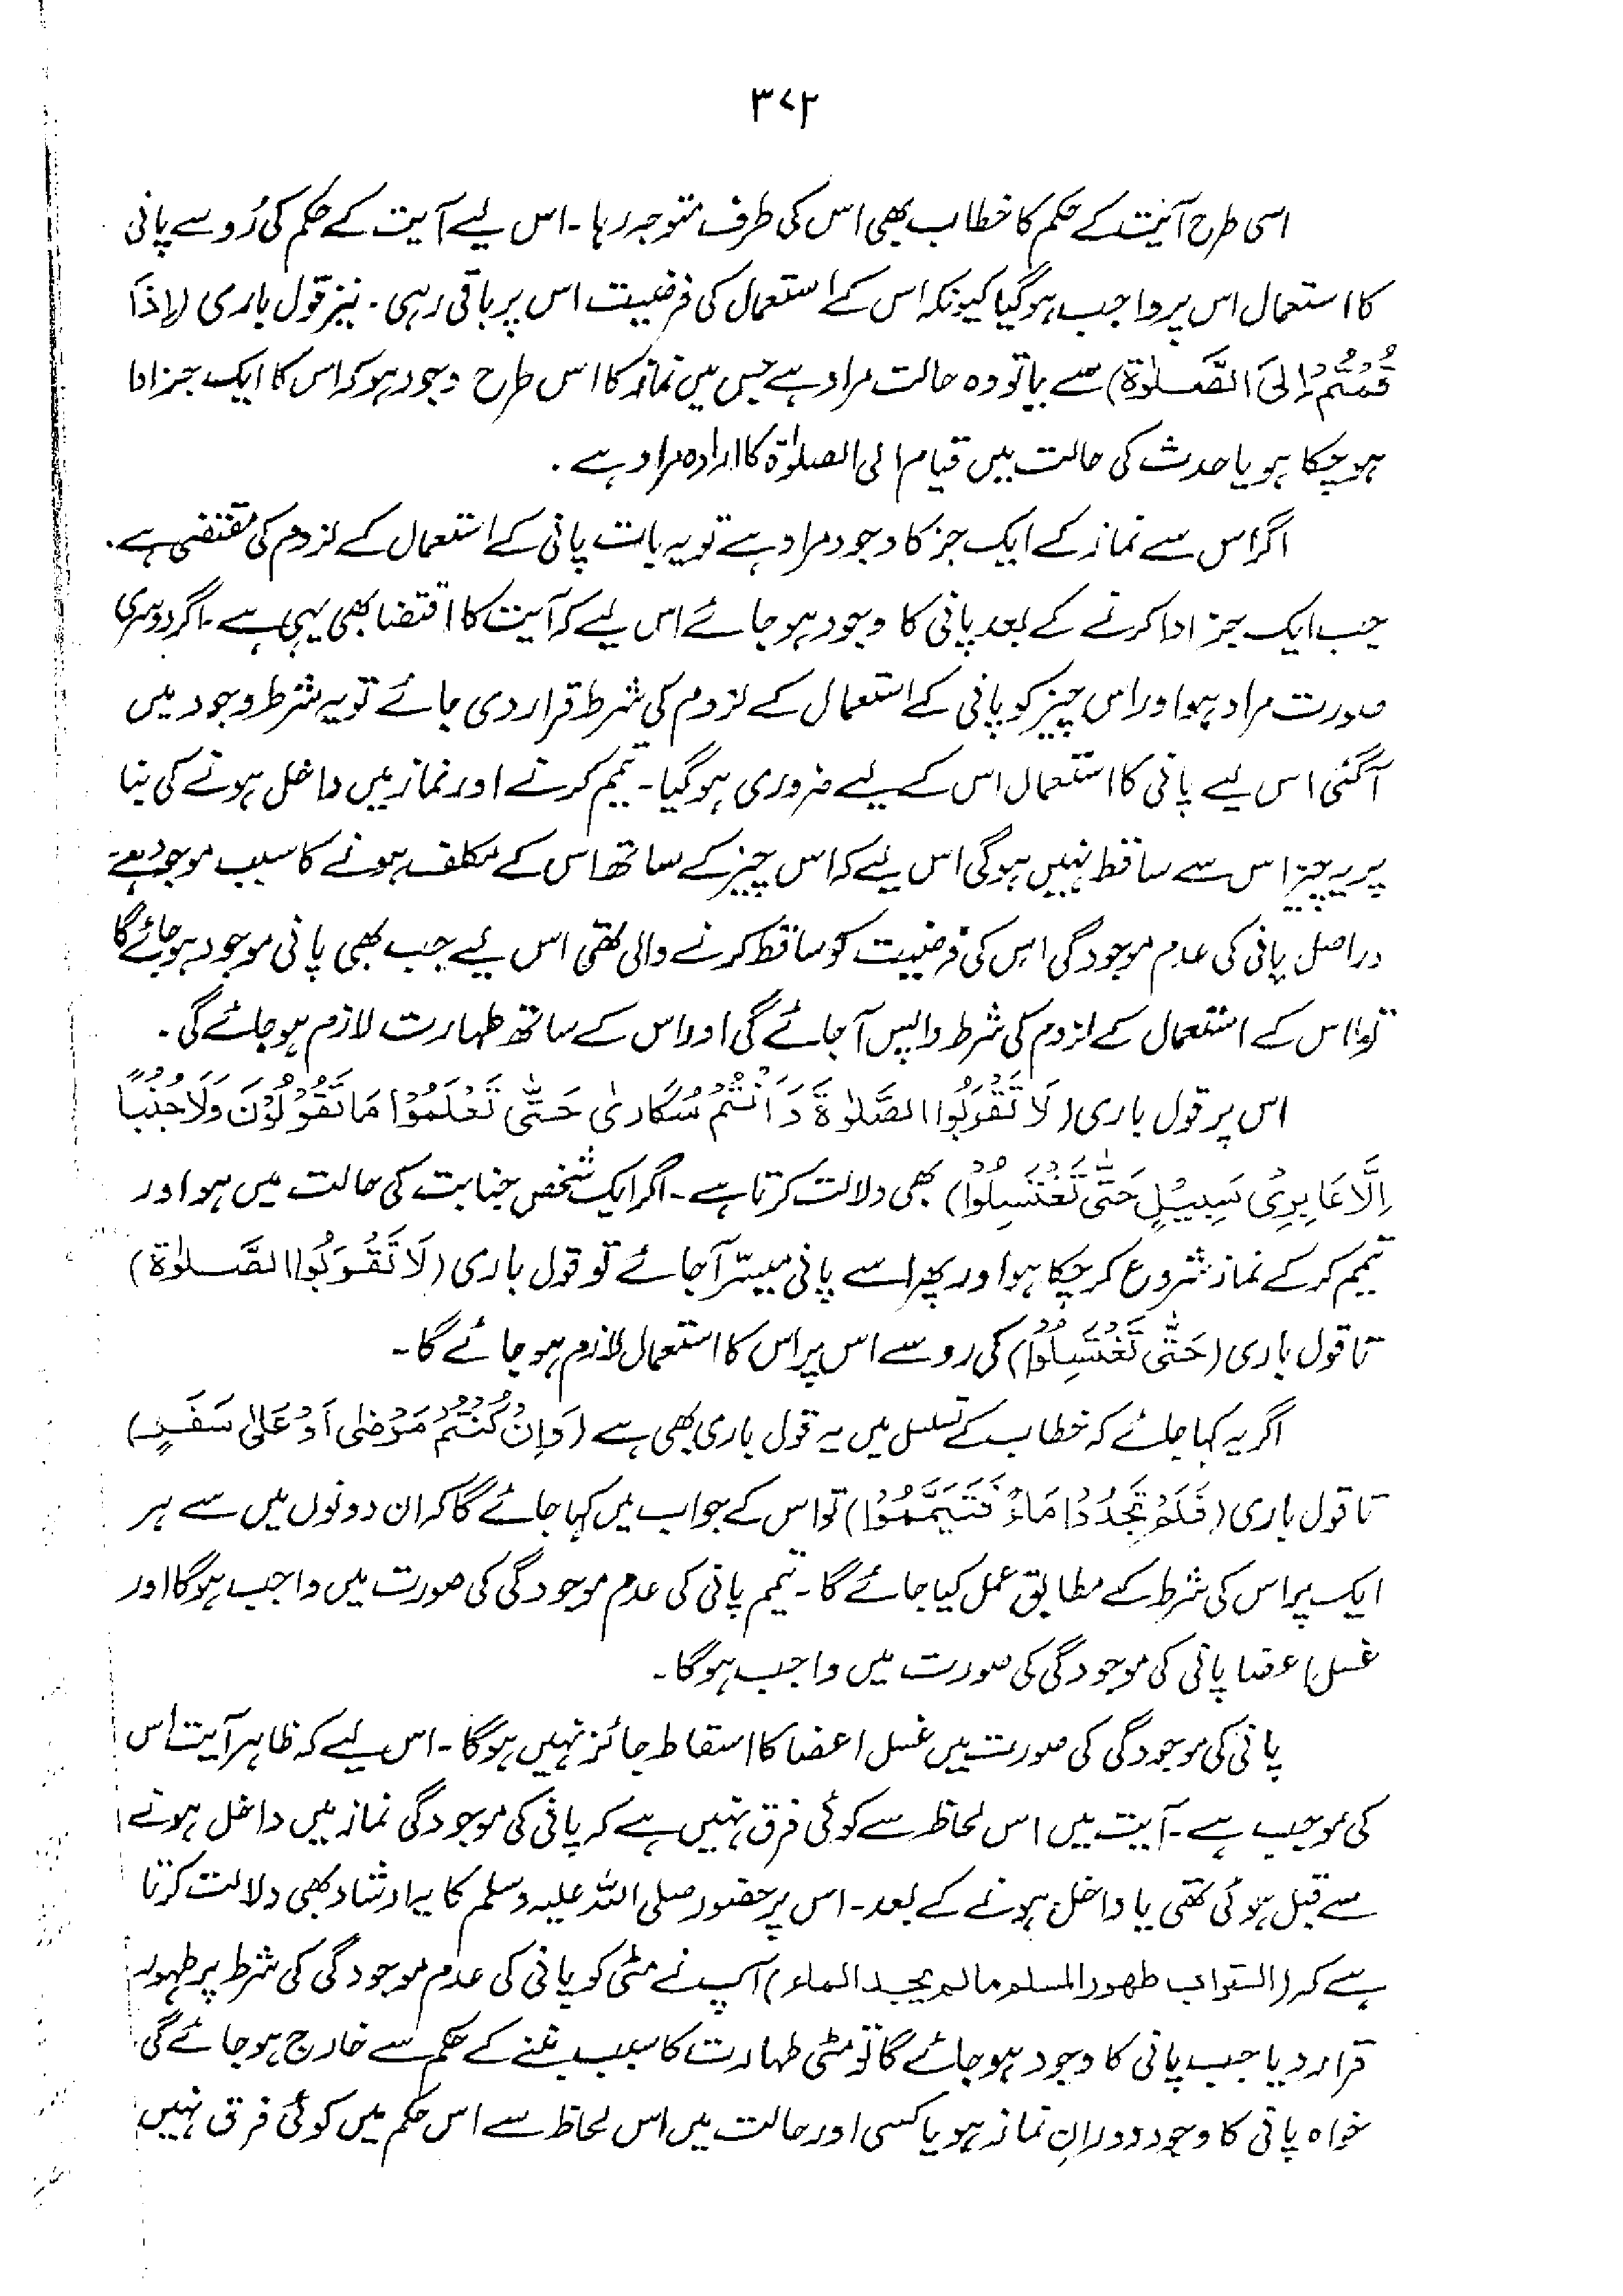 ۳۷۲
اسی طرح آیت کے حکم کا خطاب بھی اس کی طرف متوجہ رہا۔ اس لیے آیت کے حکم کی رُو سے پانی
کا استعمال اس پر واجب ہوگیا کیونکہ اس کے استعمال کی فرضیت اس پر باقی رہی۔ نیز قول باری (اِذَا
قُمْتُمْ اِلَی الصَّلٰوۃِ) سے یا تو وہ حالت مراد ہے جس میں نماز کا اس طرح وجود ہو کہ اس کا ایک جز ادا
ہوچکا ہو یا حدث کی حالت میں قیام الی الصلوٰۃ کا ارادہ مراد ہے۔
اگر اس سے نماز کے ایک جز کا وجود مراد ہے تو یہ بات پانی کے استعمال کے لزوم کی مقتضی ہے۔
جب ایک جز ادا کرنے کے بعد پانی کا وجود ہو جائے اس لیے کہ آیت کا اقتضا بھی یہی ہے۔ اگر دوسری
صورت مراد ہو اور اس چیز کو پانی کے استعمال کے لزوم کی شرط قرار دی جائے تو یہ شرط وجود میں
آگئی اس لیے پانی کا استعمال اس کے لیے ضروری ہوگیا۔ تیمم کرنے اور نماز میں داخل ہونے کی بنا
پر یہ چیز اس سے ساقط نہیں ہوگی اس لیے کہ اس چیز کے ساتھ اس کے مکلف ہونے کا سبب موجود ہے۔
دراصل پانی کی عدم موجودگی اس کی فرضیت کو ساقط کرنے والی تھی اس لیے جب بھی پانی موجود ہو جائے گا
تو اس کے استعمال کے لزوم کی شرط واپس آجائے گی اور اس کے ساتھ طہارت لازم ہو جائے گی۔
اس پر قول باری (لَا تَقْرَبُوا الصَّلٰوۃَ وَاَنْتُمْ سُکَارٰی حَتّٰی تَعْلَمُوْا مَا تَقُوْلُوْنَ وَلَا جُنُبًا
اِلَّا عَابِرِیْ سَبِیْلٍ حَتّٰی تَغْتَسِلُوْا) بھی دلالت کرتا ہے۔ اگر ایک شخص جنابت کی حالت میں ہو اور
تیمم کرکے نماز شروع کرچکا ہو اور پھر اسے پانی میسّر آجائے تو قول باری (لَا تَقْرَبُوا الصَّلٰوۃَ)
تا قول باری (حَتّٰی تَغْتَسِلُوْا) کی رو سے اس پر اس کا استعمال لازم ہو جائے گا۔
اگر یہ کہا جائے کہ خطاب کے تسلسل میں یہ قول باری بھی ہے (وَاِنْ کُنْتُمْ مَرْضٰی اَوْ عَلٰی سَفَرٍ)
تا قول باری (فَلَمْ تَجِدُوْا مَاءً فَتَیَمَّمُوْا) تو اس کے جواب میں کہا جائے گا کہ ان دونوں میں سے ہر
ایک پر اس کی شرط کے مطابق عمل کیا جائے گا۔ تیمم پانی کی عدم موجودگی کی صورت میں واجب ہوگا اور
غسل اعضا پانی کی موجودگی کی صورت میں واجب ہوگا۔
پانی کی موجودگی کی صورت میں غسل اعضا کا اسقاط جائز نہیں ہوگا۔ اس لیے کہ ظاہر آیت اس
کی موجب ہے۔ آیت میں اس لحاظ سے کوئی فرق نہیں ہے کہ پانی کی موجودگی نماز میں داخل ہونے
سے قبل ہوئی تھی یا داخل ہونے کے بعد۔ اس پر حضور صلی اللہ علیہ وسلم کا یہ ارشاد بھی دلالت کرتا
ہے کہ (التراب طھور المسلم مالم یجد الماء) آپ نے مٹی کو پانی کی عدم موجودگی کی شرط پر طہور
قرار دیا جب پانی کا وجود ہو جائے گا تو مٹی طہارت کا سبب بننے کے حکم سے خارج ہو جائے گی
خواہ پانی کا وجود دورانِ نماز ہو یا کسی اور حالت میں اس لحاظ سے اس حکم میں کوئی فرق نہیں